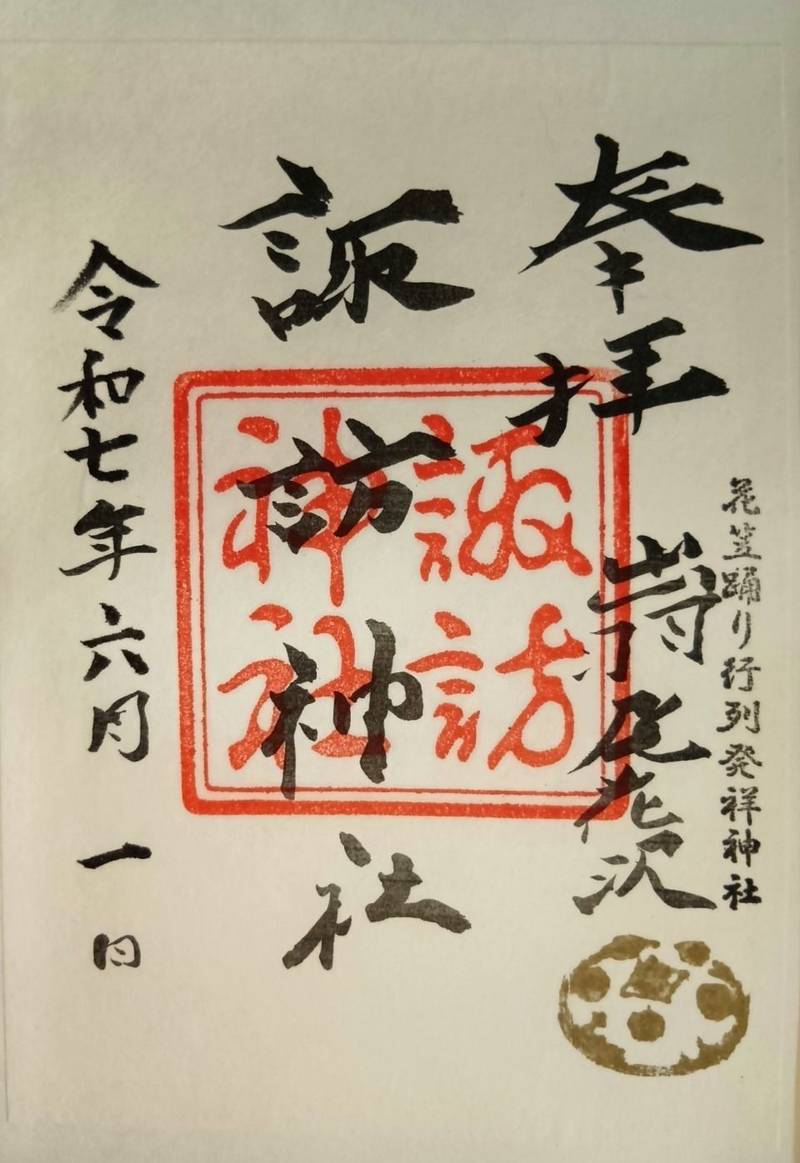 奉拝
花笠踊り行列発祥神社
尾花沢
諏訪神社
諏訪
神社
令和七年六月一日